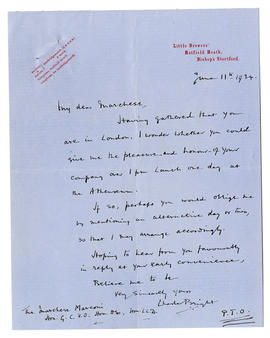 Little Brewers'
Hatfield Heath,
Bishop's Stortford.
June 11th 1934.
My dear Marchese,
Having gathered that you
are in London. I wonder whether you could
give me the pleasure and honour of your
company over 1 pm lunch one day at
the Athenæum.
If so, perhaps you would oblige me
by mentioning an alternative day or two,
so that I may arrange accordingly.
Hoping to hear from you favourably
in reply at your early convenience,
Believe me to be
Very Sincerely yours
Charles Bright
The Marchese Marconi
Hon. G.C.V.O. Hon DSc, Hon LLD.
P.T.O.